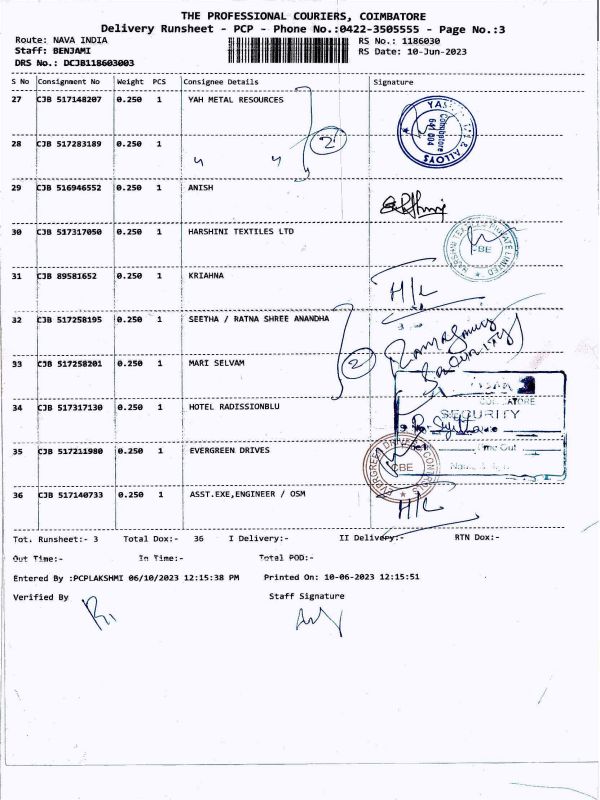 THE PROFESSIONAL COURIERS, COIMBATORE
Delivery Runsheet - PCP - Phone No.:0422-3505555 - Page No.:3
Route: NAVA INDIA RS No.: 1186030
Staff: BENJAMI RS Date: 10-Jun-2023
DRS No.: DCJB118603003
S No Consignment No Weight PCS Consignee Details Signature
27 CJB 517148207 0.250 1 YAH METAL RESOURCES
28 CJB 517283189 0.250 1 " "
2
& ALLOYS
Coimbatore
641 004
29 CJB 516946552 0.250 1 ANISH
30 CJB 517317050 0.250 1 HARSHINI TEXTILES LTD
HARSHINI TEXTILES PRIVATE LIMITED
CBE
31 CJB 89581652 0.250 1 KRIAHNA
H/L
32 CJB 517258195 0.250 1 SEETHA / RATNA SHREE ANANDHA
33 CJB 517258201 0.250 1 MARI SELVAM
2
34 CJB 517317130 0.250 1 HOTEL RADISSIONBLU
SECURITY
35 CJB 517211980 0.250 1 EVERGREEN DRIVES
EVERGREEN DRIVES CONTROLS
CBE
36 CJB 517140733 0.250 1 ASST.EXE,ENGINEER / OSM
H/L
Tot. Runsheet:- 3 Total Dox:- 36 I Delivery:- II Delivery:- RTN Dox:-
Out Time:- In Time:- Total POD:-
Entered By :PCPLAKSHMI 06/10/2023 12:15:38 PM Printed On: 10-06-2023 12:15:51
Verified By Staff Signature